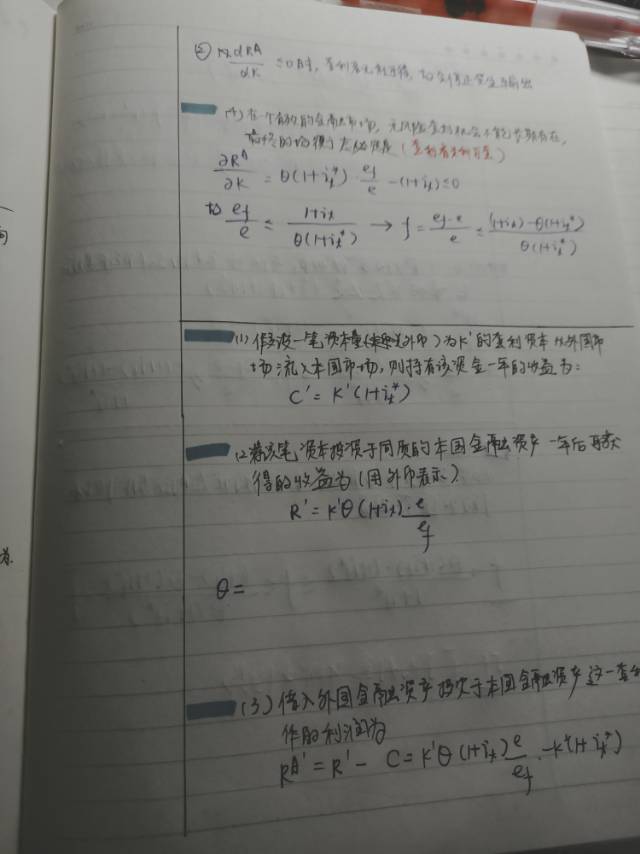 ② dRA
dK ≤0时, 套利者无利可得,
(4) 在一个有效的金融市场, 无风险套利机会不能长期存在,
最终的均衡 (套利者无利可套)
∂RA/∂K = θ(1+i*t)·ef/e −(1+it)≤0
ef/e ≤ 1+it/θ(1+i*t) → f = ef-e/e ≤ (1+it)−θ(1+i*t)/θ(1+i*t)
(1) 假设一笔资本量 为K'的套利资本从外国市
场流入本国市场, 则持有该资金一年的收益为:
C' = K'(1+i*t)
(2) 若该笔资本投资于同质的本国金融资产 一年后再获
得的收益为(用外币表示)
R' = K'θ(1+it)·e/ef
θ=
(3) 借入外国金融资产投资于本国金融资产这一套利
作的利润为
RA' = R' − C = K'θ(1+it)e/ef −K'(1+i*t)